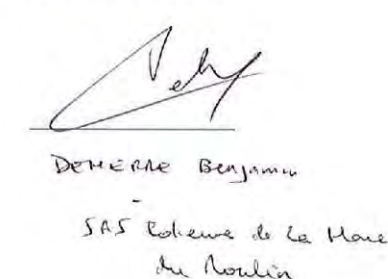 DEMERRE Benjamin
SAS Eolienne de la Mare
du Moulin